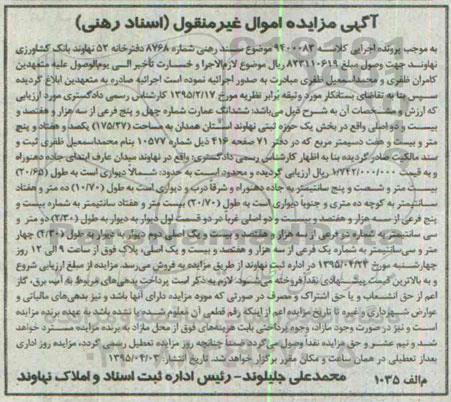 آگهی مزایده اموال غیرمنقول (اسناد رهنی)
به موجب پرونده اجرایی کلاسه ۹۴۰۰۰۸۳ موضوع سند رهنی شماره ۸۷۶۸ دفترخانه ۵۲ نهاوند بانک کشاورزی
نهاوند جهت وصول مبلغ ۸۳۳۱۱۰۶۱۹ ریال موضوع لازم‌الاجرا و خسارت تأخیر الی یوم‌الوصول علیه متعهدین
کامران ظفری و محمداسمعیل ظفری مبادرت به صدور اجرائیه نموده است اجرائیه صادره به متعهدین ابلاغ گردیده
سپس بنا به تقاضای بستانکار مورد وثیقه برابر نظریه مورخ ۱۳۹۵/۲/۱۷ کارشناس رسمی دادگستری مورد ارزیابی
که ارزش و مشخصات آن به شرح ذیل می‌باشد: ششدانگ عمارت شماره چهل و پنج فرعی از سه هزار و هفتصد و
بیست و دو اصلی واقع در بخش یک حوزه ثبتی نهاوند استان همدان به مساحت (۱۷۵/۳۷) یکصد و هفتاد و پنج
متر و بیست و هفت دسیمتر مربع که در دفتر ۷۱ صفحه ۴۱۶ ذیل شماره ۱۰۵۷۷ بنام محمداسمعیل ظفری ثبت و
سند مالکیت صادر گردیده بنا به اظهار کارشناس رسمی دادگستری: واقع در نهاوند میدان عارف ابتدای جاده دهنوراه
و به قیمت ۱/۷۴۲/۰۰۰/۰۰۰ ریال ارزیابی گردیده و محدود است به حدود: شمالا دیواری است به طول (۲۰/۶۵)
بیست متر و شصت و پنج سانتیمتر به جاده دهنوراه و شرقا درب و دیواری است به طول (۱۰/۷۰) ده متر و هفتاد
سانتیمتر به کوچه ده متری و جنوبا دیواری است به طول (۲۰/۷۰) بیست متر و هفتاد سانتیمتر به شماره بیست و
پنج فرعی از سه هزار و هفتصد و بیست و دو اصلی غربا در دو قسمت اول دیوار به دیوار به طول (۲/۳۰) دو متر و
سی سانتیمتر به شماره دو فرعی از سه هزار و هفتصد و بیست و یک اصلی، دوم دیوار به دیوار به طول (۴/۳۰) چهار
متر و سی سانتیمتر به شماره یک فرعی از سه هزار و هفتصد و بیست و یک اصلی، پلاک فوق از ساعت ۹ الی ۱۲ روز
چهارشنبه مورخ ۱۳۹۵/۰۴/۲۳ در اداره ثبت نهاوند از طریق مزایده به فروش می‌رسد. مزایده از مبلغ ارزیابی شروع
و به بالاترین قیمت پیشنهادی نقدا فروخته می‌شود: لازم به ذکر است پرداخت بدهی‌های مربوط به آب، برق، گاز
اعم از حق انشعاب و یا حق اشتراک و مصرف در صورتی که مورد مزایده دارای آنها باشد و نیز بدهی‌های مالیاتی و
عوارض شهرداری و غیره تا تاریخ مزایده اعم از اینکه رقم قطعی آن معلوم شده یا نشده باشد به عهده برنده مزایده
است و نیز در صورت وجود مازاد، وجوه پرداختی بابت هزینه‌های فوق از محل مازاد به برنده مزایده مسترد خواهد
شد و نیم عشر و حق مزایده نقدا وصول می‌گردد ضمنا چنانچه روز مزایده تعطیل رسمی گردد، مزایده روز اداری
بعداز تعطیلی در همان ساعت و مکان مقرر برگزار خواهد شد. تاریخ انتشار: ۱۳۹۵/۰۴/۰۳
م الف ۱۰۳۵ محمدعلی جلیلوند- رئیس اداره ثبت اسناد و املاک نهاوند